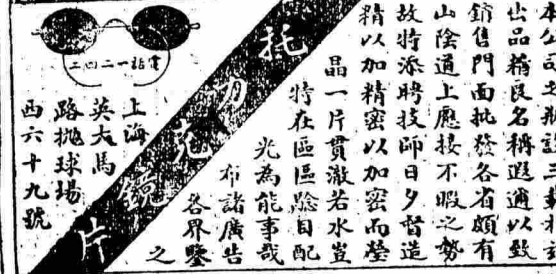 出品精良名稱遐邇以致
銷售門面批發各省頗有
山陰道上應接不暇之勢
故特添聘技師日夕督造
精以加精密以加密而瑩
晶一片貫澈若水豈
特在區區騐目配
光為能事哉
布諸廣告
各界鑒
之
托力克鏡片
電話一二四二
上海
英大馬
路拋球場
西六十九號